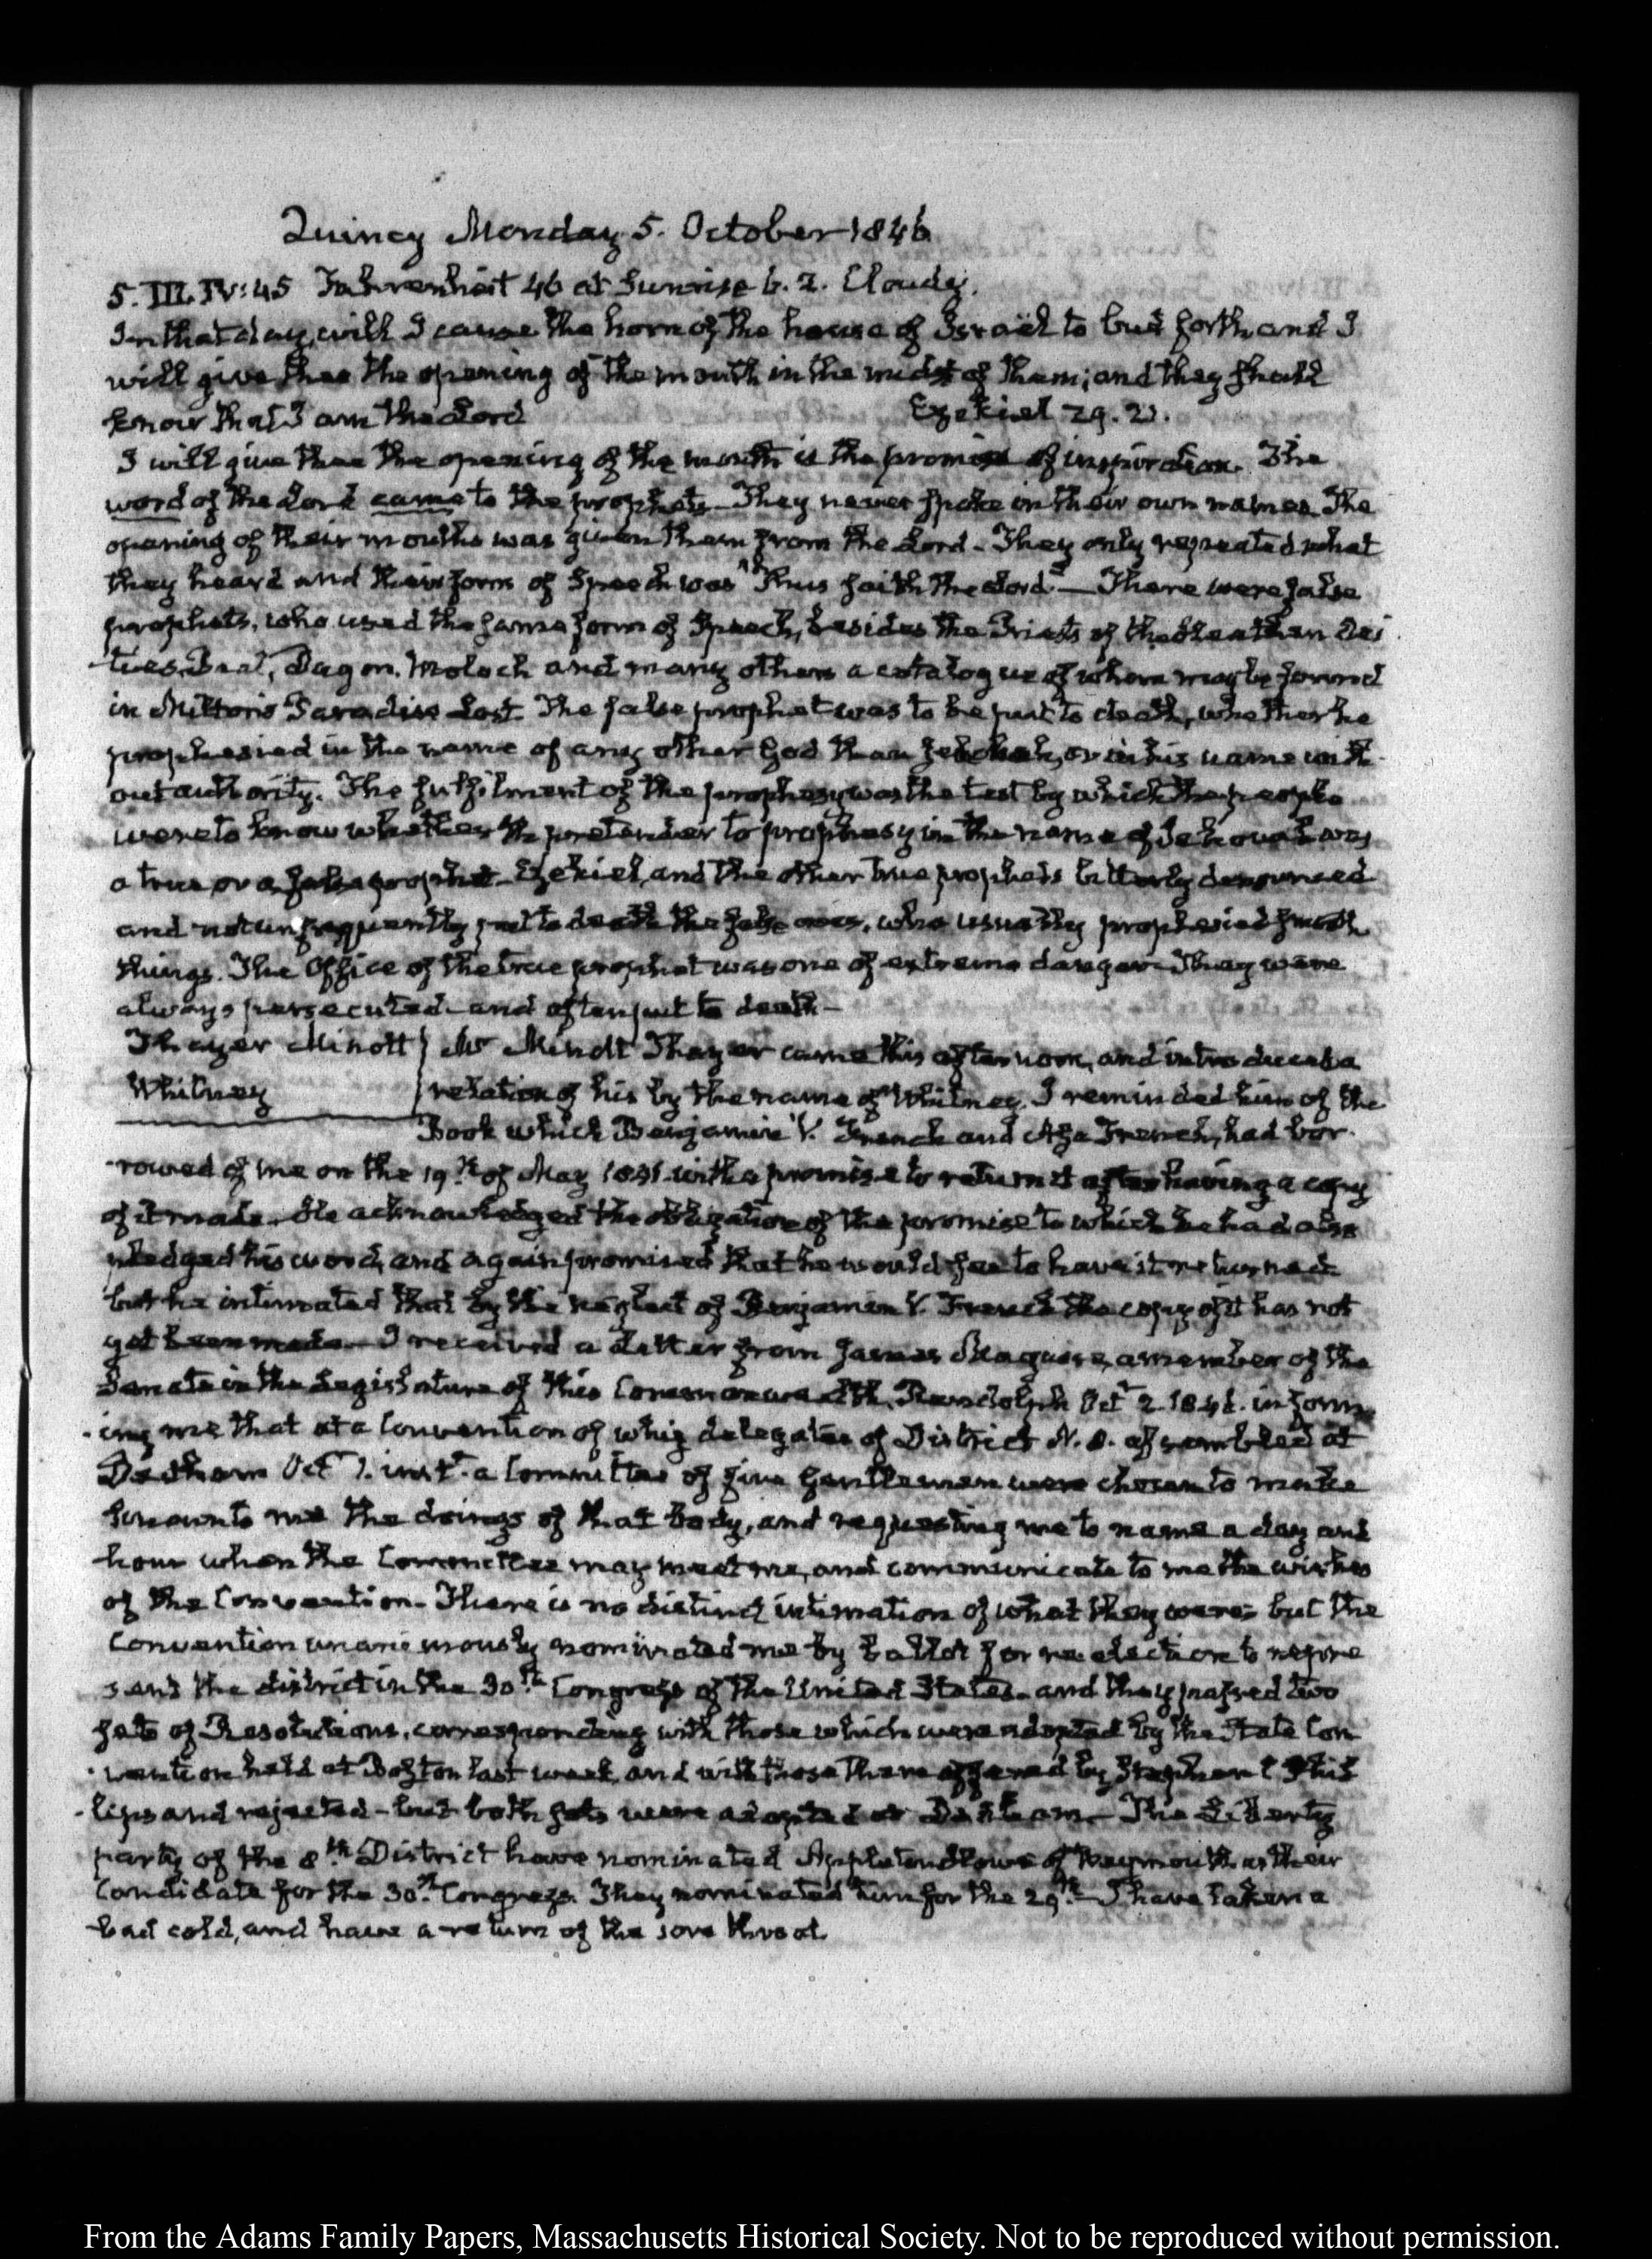 Quincy Monday 5. October 1846
5. III. IV:45 Fahrenheit 46 at Sunrise 6. 2. Cloudy.
In that day, will I cause the horn of the house of Israel to bud forth, and I
will give thee the opening of the mouth in the midst of them; and they shall
know that I am the Lord Ezekiel 29. 21.
I will give thee the opening of the mouth is the promise of inspiration. The
word of the Lord came to the prophets—They never spoke in their own names. The
opening of their mouths was given them from the Lord—They only repeated what
they heard and their form of Speech was "Thus saith the Lord"—There were false
prophets, who used the same form of Speech, besides the Priests of the Heathen Dei
-ties, Baal, Dagon, Moloch and many others a catalogue of whom may be found
in Milton's Paradise Lost. The false prophet was to be put to death, whether he
prophesied in the name of any other God than Jehovah, or in his name with
out authority. The fulfilment of the prophesy was the test by which the people
were to know whether the pretender to prophesy in the name of Jehovah was
a true or a false prophet—Ezekiel, and the other true prophets bitterly denounced
and not unfrequently put to death the false ones, who usually prophesied smooth
things. The Office of the true prophet was one of extreme danger—They were
always persecuted—and often put to death—
Thayer Minott Mr Minott Thayer came this afternoon, and introduced a
Whitney relation of his by the name of Whitney. I reminded him of the
Book which Benjamin V. French and Asa French, had bor
-rowed of me on the 19th of May 1841 with a promise to return it after having a copy
of it made. He acknowledged the obligation of the promise to which he had also
pledged his word, and again promised that he would see to have it returned
but he intimated that by the neglect of Benjamin V. French the copy of it has not
yet been made—I received a Letter from James Maguire, a member of the
Senate in the Legislature of this Commonwealth, Randolph Oct 2. 1846. inform
-ing me that at a Convention of whig delegates of District N. 8. assembled at
Dedham Oct 1. inst. a Committee of five Gentlemen were chosen to make
known to me the doings of that body, and requesting me to name a day and
hour when the Committee may meet me, and communicate to me the wishes
of the Convention—There is no distinct intimation of what they were; but the
Convention unanimously nominated me by ballot for re election to repre
sent the district in the 30th Congress of the United States—and they passed two
sets of Resolutions, corresponding with those which were adopted by the State Con
-vention held at Boston last week, and with those there offered by Stephen C Phil
-lips and rejected—but both sets were adopted at Dedham—The Liberty
party of the 8th District have nominated Appleton Howe of Weymouth as their
Candidate for the 30th Congress. They nominated him for the 29th—I have taken a
bad cold, and have a return of the sore throat.
From the Adams Family Papers, Massachusetts Historical Society. Not to be reproduced without permission.